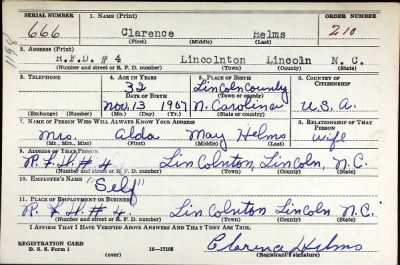 SERIAL NUMBER 1. NAME (Print) ORDER NUMBER
666 Clarence Helms 210
(First) (Middle) (Last)
1198
2. ADDRESS (Print)
R.F.D. # 4 Lincolnton Lincoln N. C.
(Number and street or R. F. D. number) (Town) (County) (State)
3. TELEPHONE 4. AGE IN YEARS 5. PLACE OF BIRTH 6. COUNTRY OF CITIZENSHIP
32 Lincoln County
DATE OF BIRTH (Town or county)
Nov. 13 1907 N. Carolina U.S.A.
(Exchange) (Number) (Mo.) (Day) (Yr.) (State or country)
7. NAME OF PERSON WHO WILL ALWAYS KNOW YOUR ADDRESS 8. RELATIONSHIP OF THAT PERSON
Mrs. Alda May Helms wife
(Mr., Mrs., Miss) (First) (Middle) (Last)
9. ADDRESS OF THAT PERSON
R.F.D. # 4. Lincolnton, Lincoln, N.C.
(Number and street or R. F. D. number) (Town) (County) (State)
10. EMPLOYER'S NAME
"Self"
11. PLACE OF EMPLOYMENT OR BUSINESS
R.F.D. # 4. Lincolnton Lincoln N.C.
(Number and street or R. F. D. number) (Town) (County) (State)
I AFFIRM THAT I HAVE VERIFIED ABOVE ANSWERS AND THAT THEY ARE TRUE.
REGISTRATION CARD
D. S. S. Form 1 16—17105 Clarence Helms
(over) (Registrant's signature)